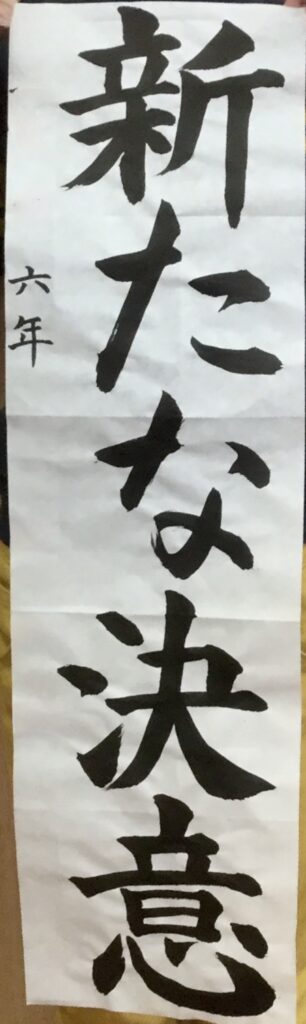 新たな決意
六年